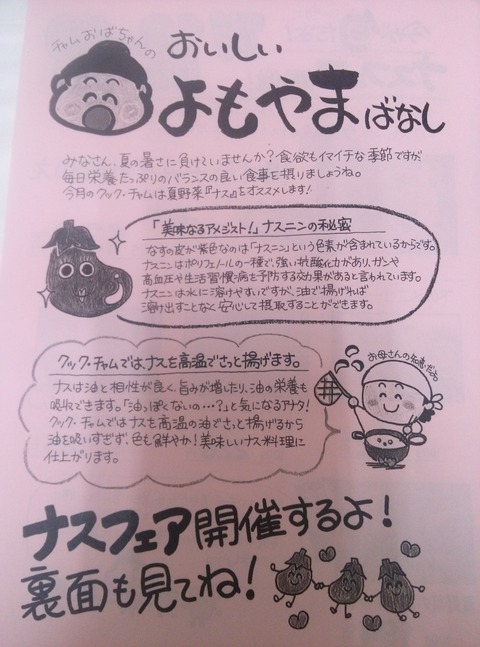 チャムおばちゃんの
おいしい
よもやまばなし
みなさん、夏の暑さに負けていませんか？食欲もイマイチな季節ですが
毎日栄養たっぷりのバランスの良い食事を摂りましょうね。
今月のクック・チャムは夏野菜『ナス』をオススメします！
「美味なるアメジスト！」ナスニンの秘密
なすの皮が紫色なのは「ナスニン」という色素が含まれているからです。
ナスニンはポリフェノールの一種で、強い抗酸化力があり、ガンや
高血圧や生活習慣病を予防する効果があると言われています。
ナスニンは水に溶けやすいですが、油で揚げれば
溶け出すことなく安心して摂取することができます。
クック・チャムではナスを高温でさっと揚げます。
お母さんの知恵だね
ナスは油と相性が良く、旨みが増したり、油の栄養も
吸収できます。「油っぽくないの…？」と気になるアナタ！
クック・チャムではナスを高温の油でさっと揚げるから
油を吸いすぎず、色も鮮やか！美味しいナス料理に
仕上がります。
ナスフェア開催するよ！
裏面も見てね！